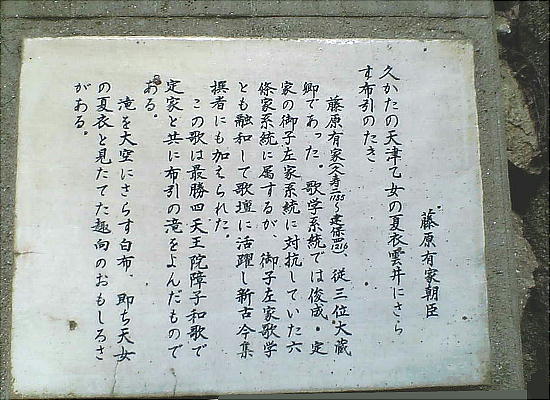 藤原有家朝臣
久かたの天津乙女の夏衣雲井にさら
す布引のたき
藤原有家(久寿二1155~建保四1216)、従三位大蔵
卿であった。歌学系統では俊成・定
家の御子左家系統に対抗していた六
條家系統に属するが、御子左家歌学
とも融和して歌壇に活躍し新古今集
撰者にも加えられた。
この歌は最勝四天王院障子和歌で
定家と共に布引の滝をよんだもので
ある。
滝を大空にさらす白布、即ち天女
の夏衣と見たてた趣向のおもしろさ
がある。